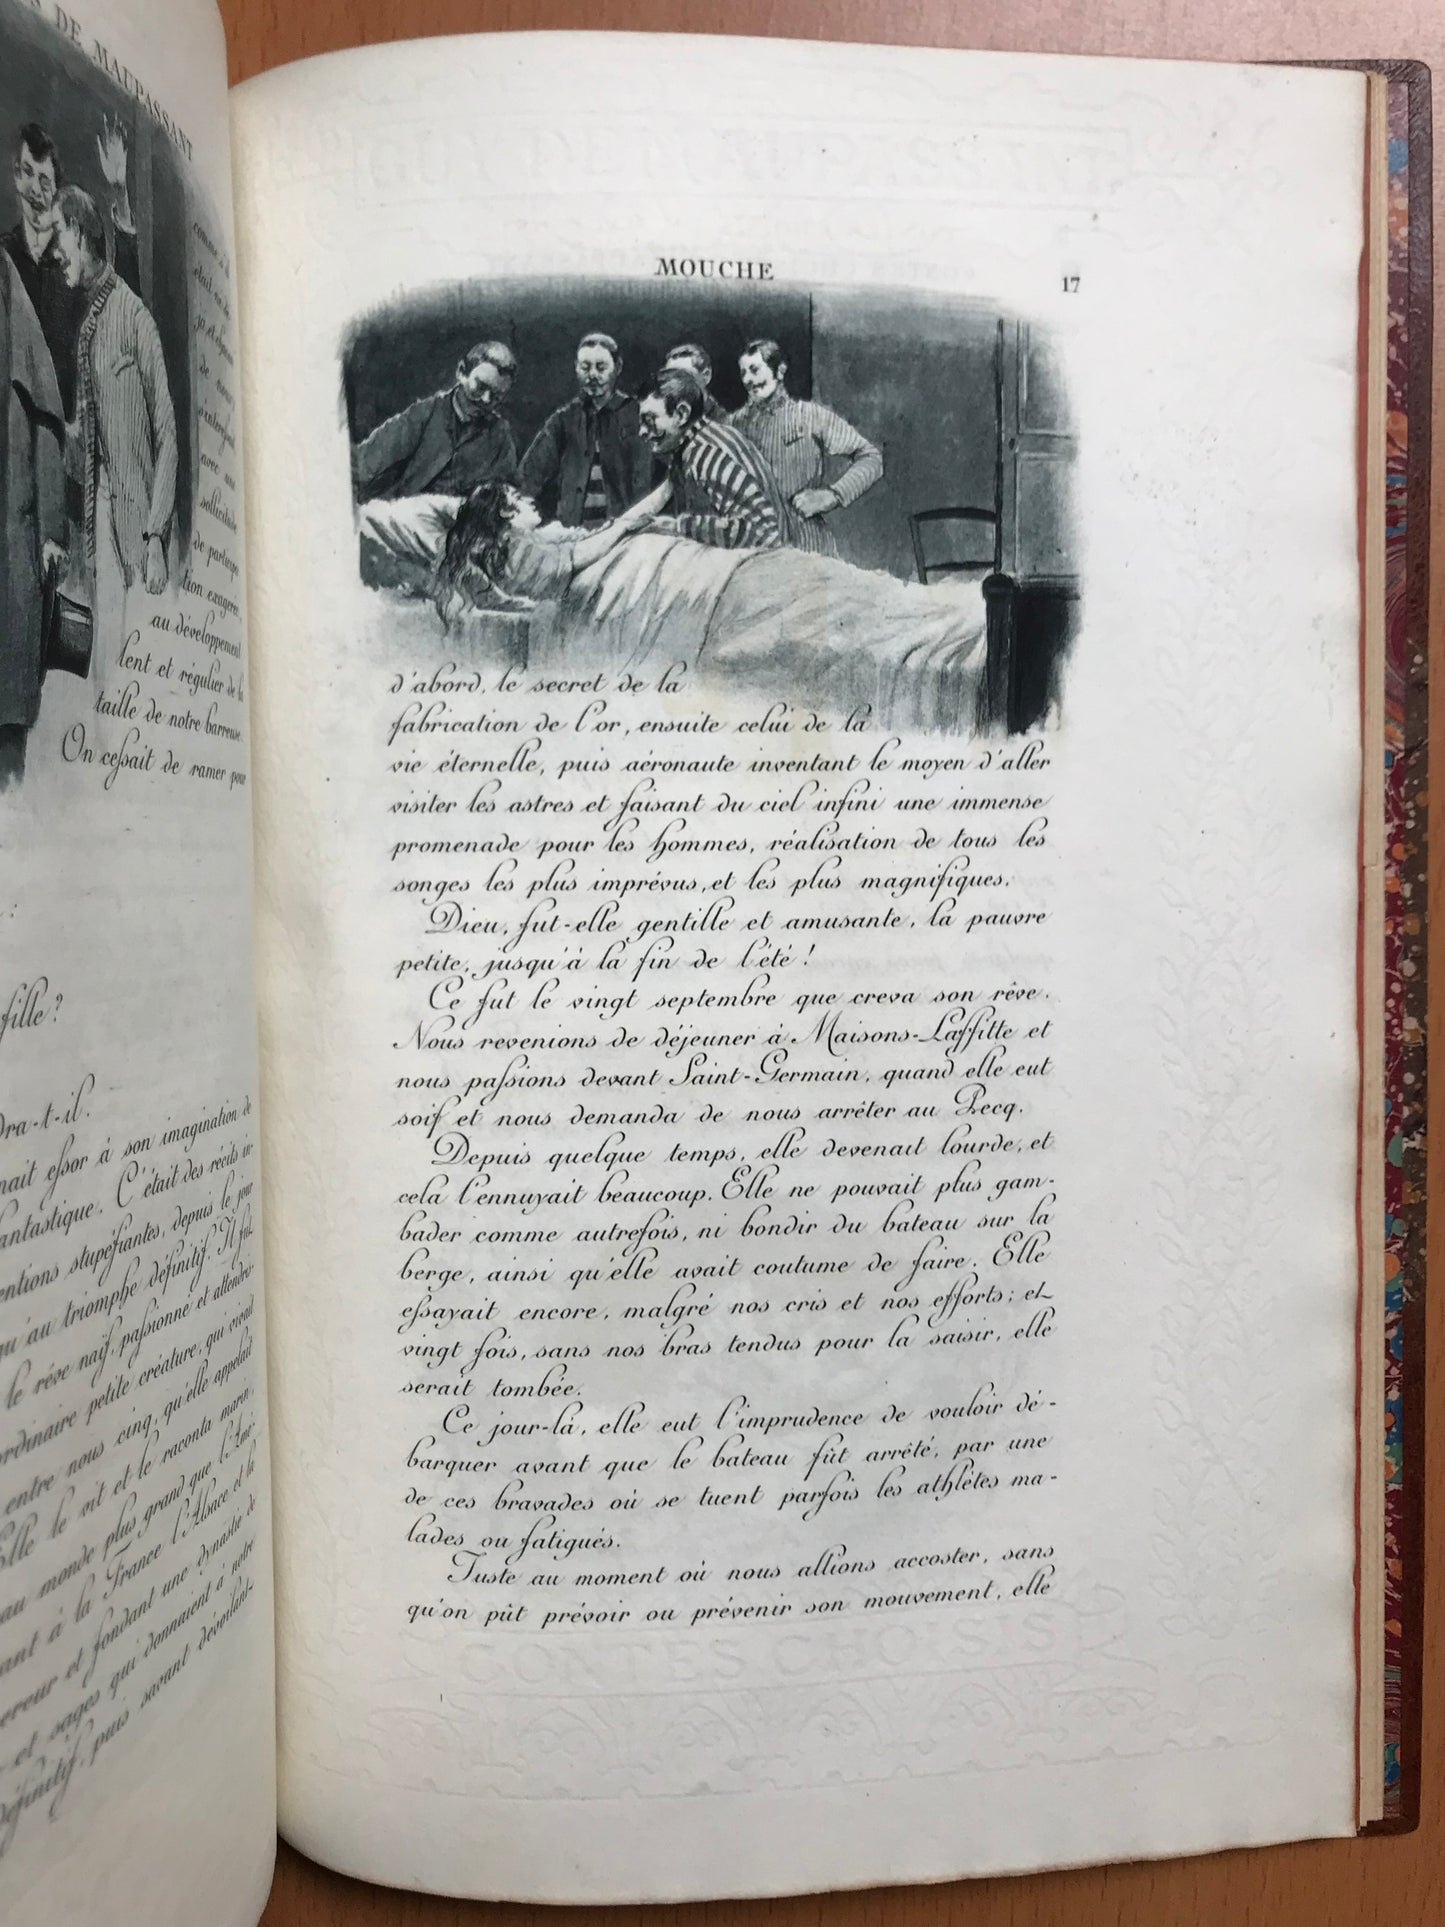 S DE MAUPASSANT
comme
était
de nous
avec une
sollicitude
de participa
tion exagérée,
au développement
lent et régulier de la
taille de notre barreuse.
On cessait de ramer pour
fille?
dra-t-il.
nait essor à son imagination de
fantastique. C'était des récits in
entions stupéfiantes, depuis le jour
qu'au triomphe définitif. Il fut
le rêve naïf, passionné et attendris
ordinaire petite créature, qui vivait
entre nous cinq, qu'elle appelait
Elle le vit et le raconta marin,
au monde plus grand que l'Amé-
ant à la France l'Alsace et la
ereur et fondant une dynastie de
et sages qui donnaient à notre
définitif, puis savant dévoilant
MOUCHE
17
d'abord, le secret de la
fabrication de l'or, ensuite celui de la
vie éternelle, puis aéronaute inventant le moyen d'aller
visiter les astres et faisant du ciel infini une immense
promenade pour les hommes, réalisation de tous les
songes les plus imprévus, et les plus magnifiques.
Dieu, fut-elle gentille et amusante, la pauvre
petite, jusqu'à la fin de l'été!
Ce fut le vingt septembre que creva son rêve.
Nous revenions de déjeuner à Maisons-Laffitte et
nous passions devant Saint-Germain, quand elle eut
soif et nous demanda de nous arrêter au Pecq.
Depuis quelque temps, elle devenait lourde, et
cela l'ennuyait beaucoup. Elle ne pouvait plus gam-
bader comme autrefois, ni bondir du bateau sur la
berge, ainsi qu'elle avait coutume de faire. Elle
essayait encore, malgré nos cris et nos efforts; et
vingt fois, sans nos bras tendus pour la saisir, elle
serait tombée.
Ce jour-là, elle eut l'imprudence de vouloir dé-
barquer avant que le bateau fût arrêté, par une
de ces bravades où se tuent parfois les athlètes ma-
lades ou fatigués.
Juste au moment où nous allions accoster, sans
qu'on pût prévoir ou prévenir son mouvement, elle